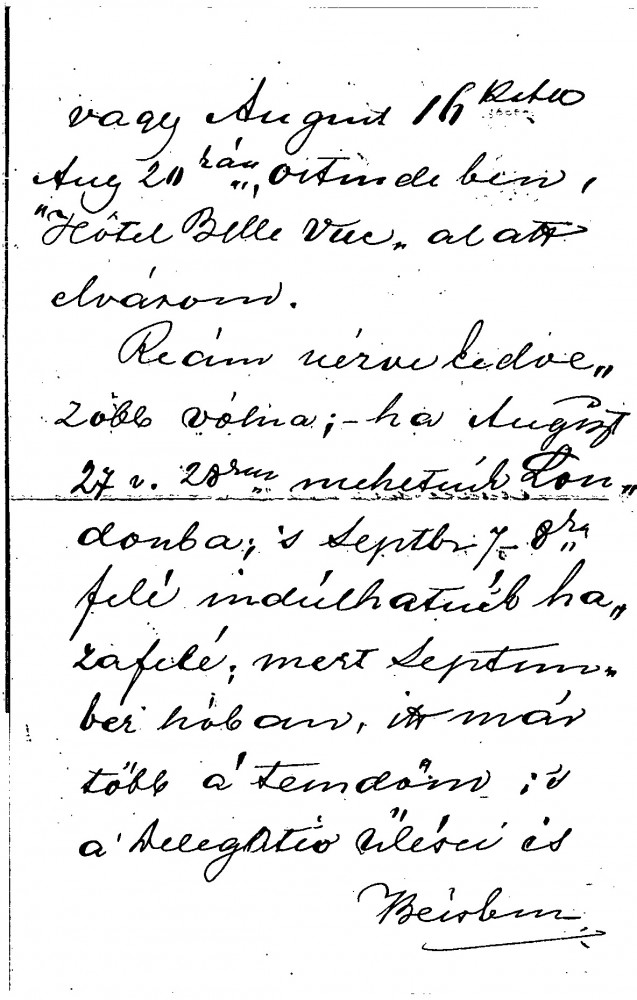 vagy August 16
Aug 20 kán„, Ostende ben,
"Hôtel Belle Vue„ alatt
elvárom.
Reám nézve kedve„
zőbb vólna; - ha August
27 v. 28 mehetnénk Lon„
donba; 's Septbr 7-8ka
felé indúlhatnék ha„
zafelé; mert Septem„
ber hóban, itt már
több a' teendőm ; 's
a' Delegatio ülései is
Bécsben